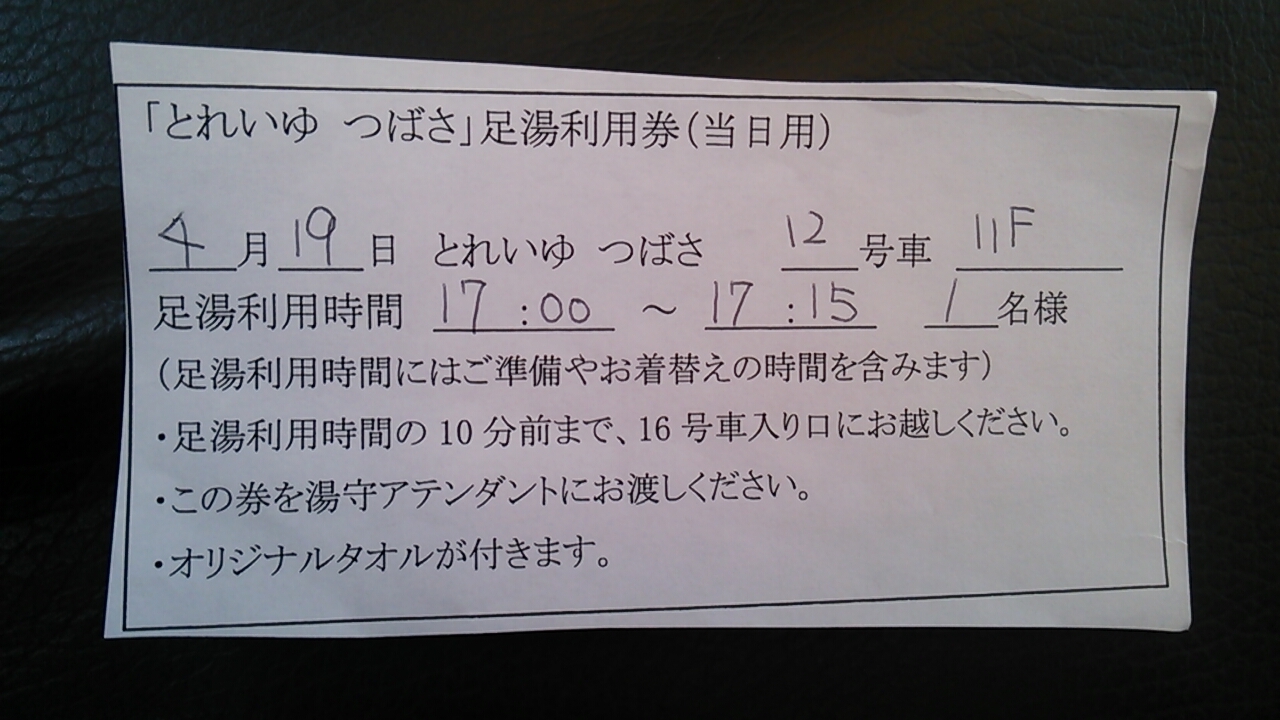 「とれいゆ つばさ」足湯利用券(当日用)
4月19日 とれいゆ つばさ 12号車 11F
足湯利用時間 17:00 ～ 17:15 1名様
(足湯利用時間にはご準備やお着替えの時間を含みます)
・足湯利用時間の10分前まで、16号車入り口にお越しください。
・この券を湯守アテンダントにお渡しください。
・オリジナルタオルが付きます。